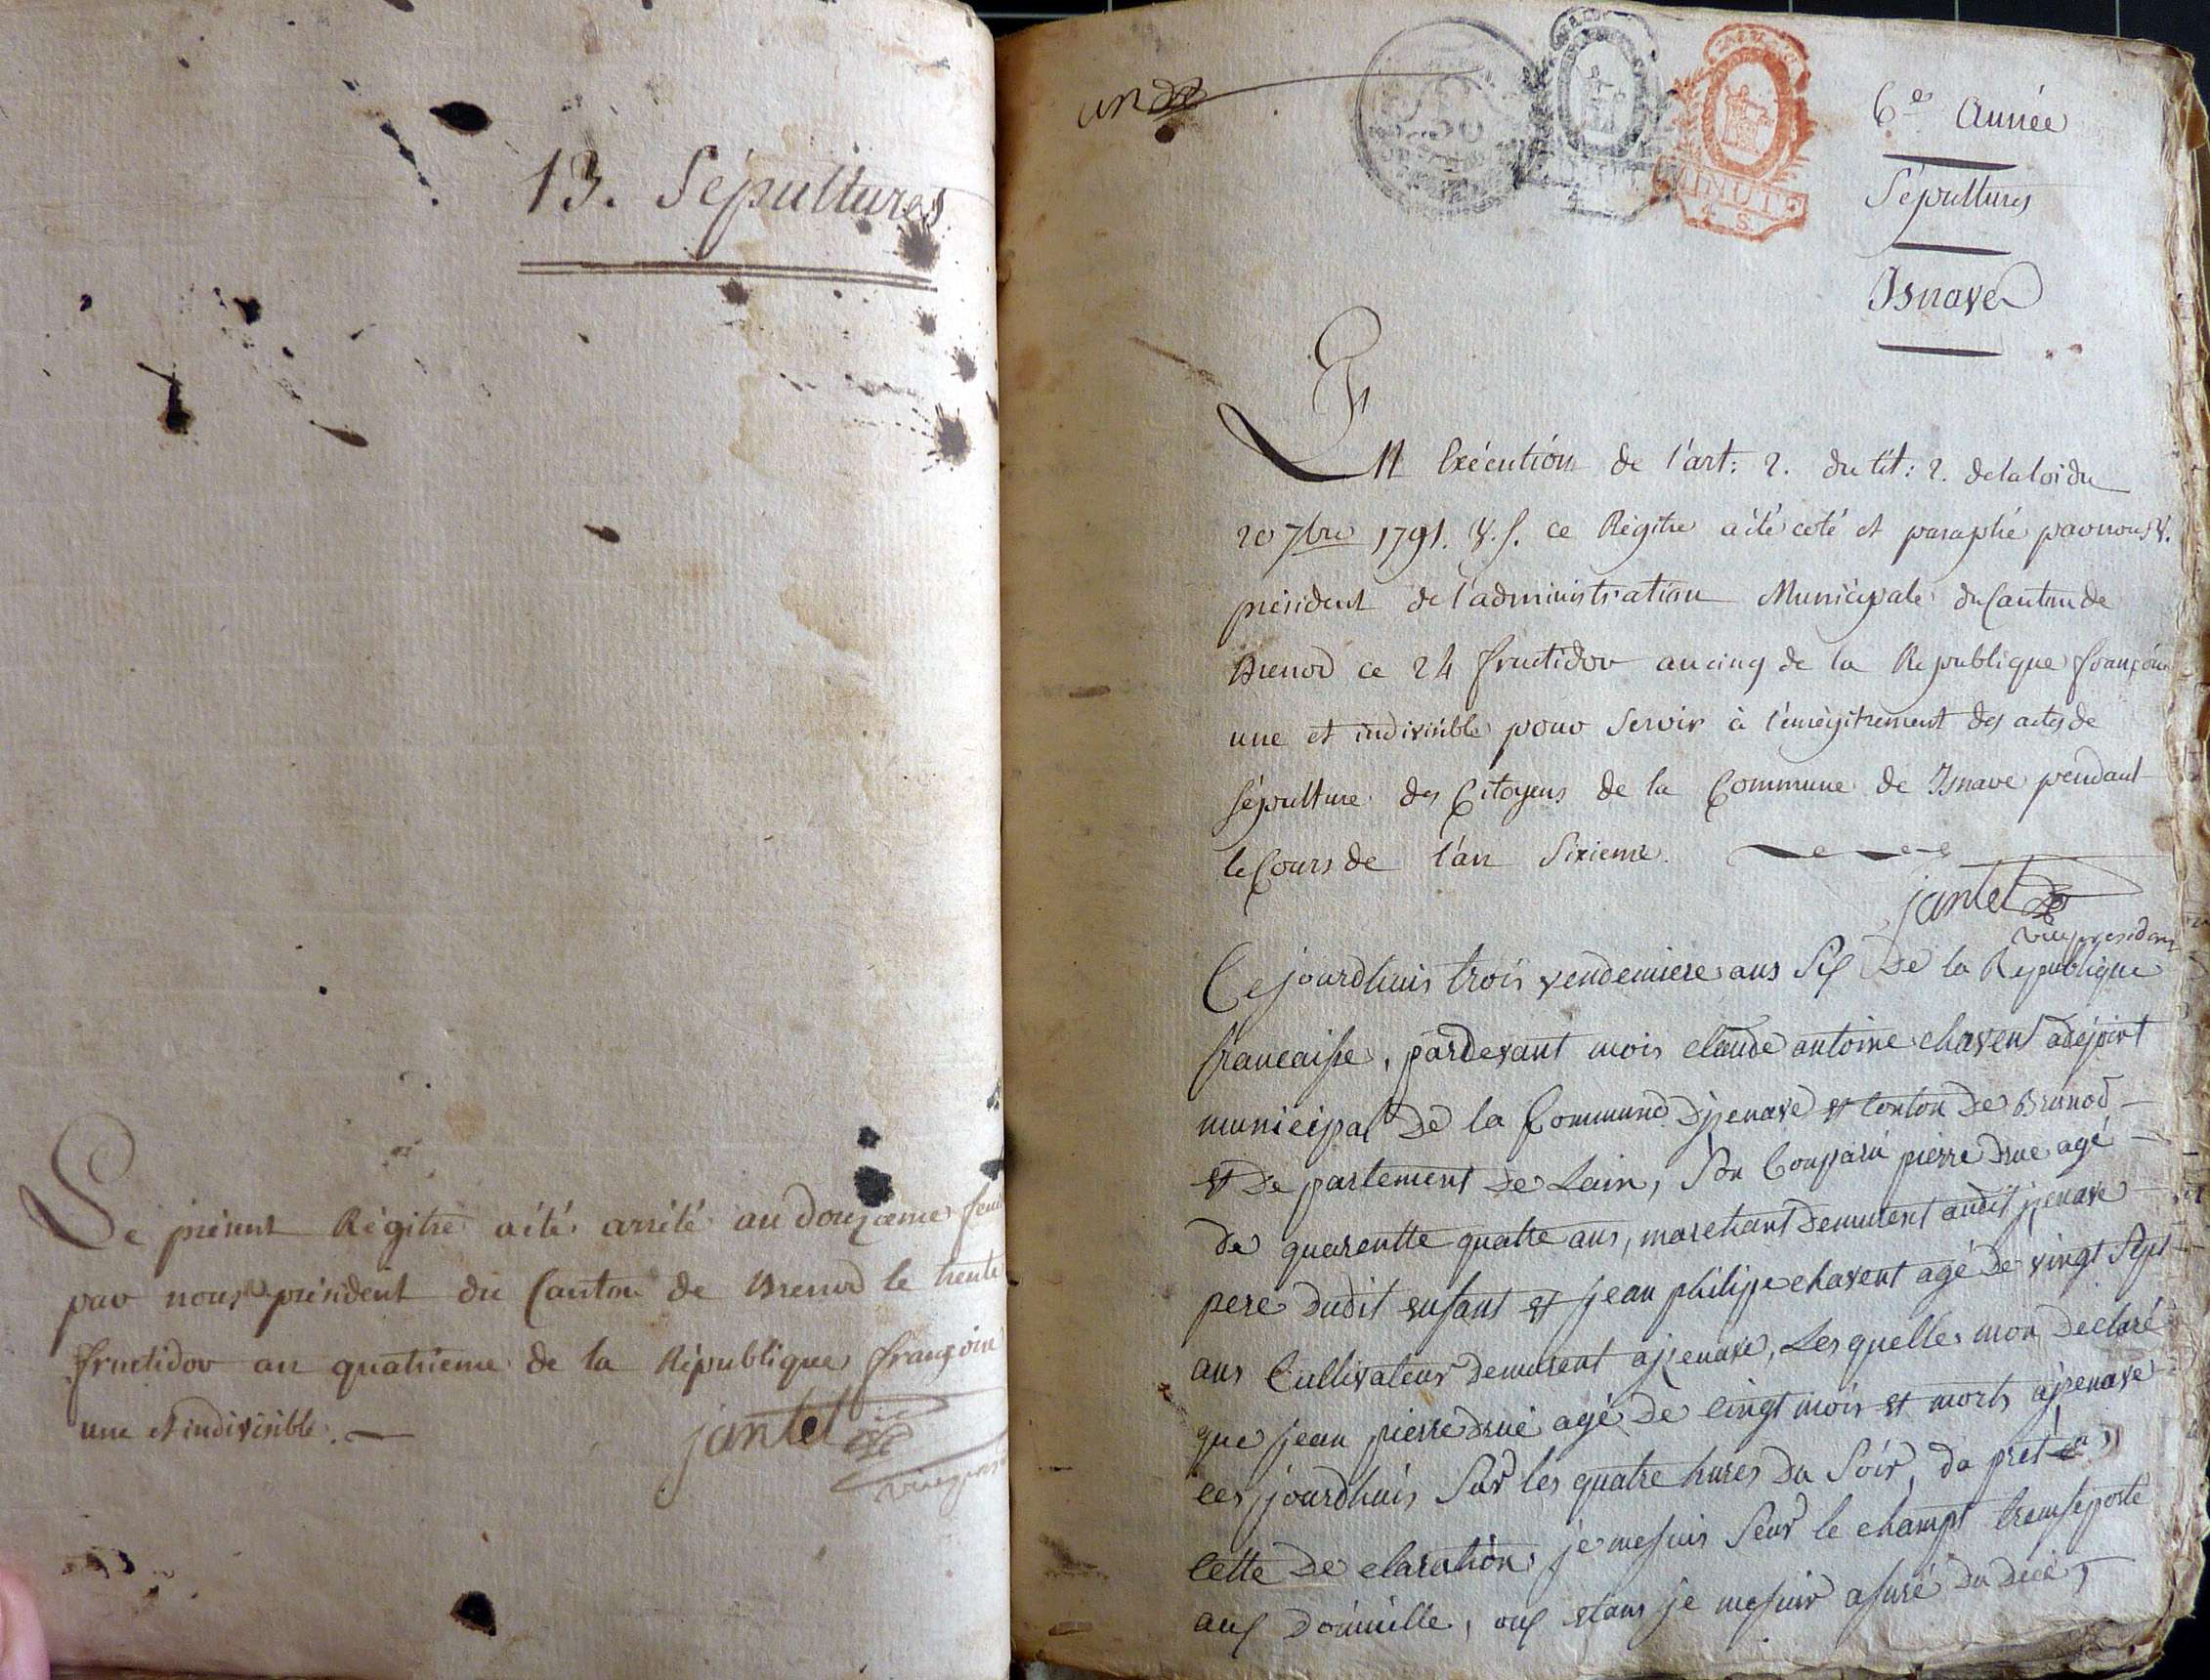 13. Sépultures
Le présent Régitre a été arrêté au douzieme feu
par nous v. président du Canton de Brenod le trente
fructidor an quatrieme de la République françoise
une et indivisible.
jantet
vice presi
un
6e Année
Sépultures
Isnave
MINUTE
4 S.
En Exécution de l'art: 2. du tit: 2. de la loi du
20 7bre 1791. v. s. ce Régitre a été coté et paraphé par nous v.
président de l'administration Municipale du Canton de
Brenod ce 24 fructidor an cinq de la Republique françoise
une et indivisible pour servir à l'enrégitrement des actes de
sépulture des Citoyens de la Commune de Isnave pendant
le Cours de l'an Sixieme.
jantet
vice president
Cejourdhuis trois vendemiere ans Six De la Republique
francaisse, pardevant mois claude antoine chavent adejoint
municipal De la Commune Djzenave et Conton De Brenod
et De partement De Lain, Son Comparu pierre drue agé
de quarentte quatre ans, marchant Demurent audit jzenave
pere dudit enfant et jean philippe chavent agé De vingt Sept
ans Cultivateur Demurent ajzenave, Les quelles mon Declaré
que jean pierre drué agé De cingt mois et morts ajzenave
ces jourdhuis Sur les quatre hures Du Soir, da pret
cette De claration, je me suis Seur le champt transeporté
aux Domicille, oux etans je me suis asuré Du decé,